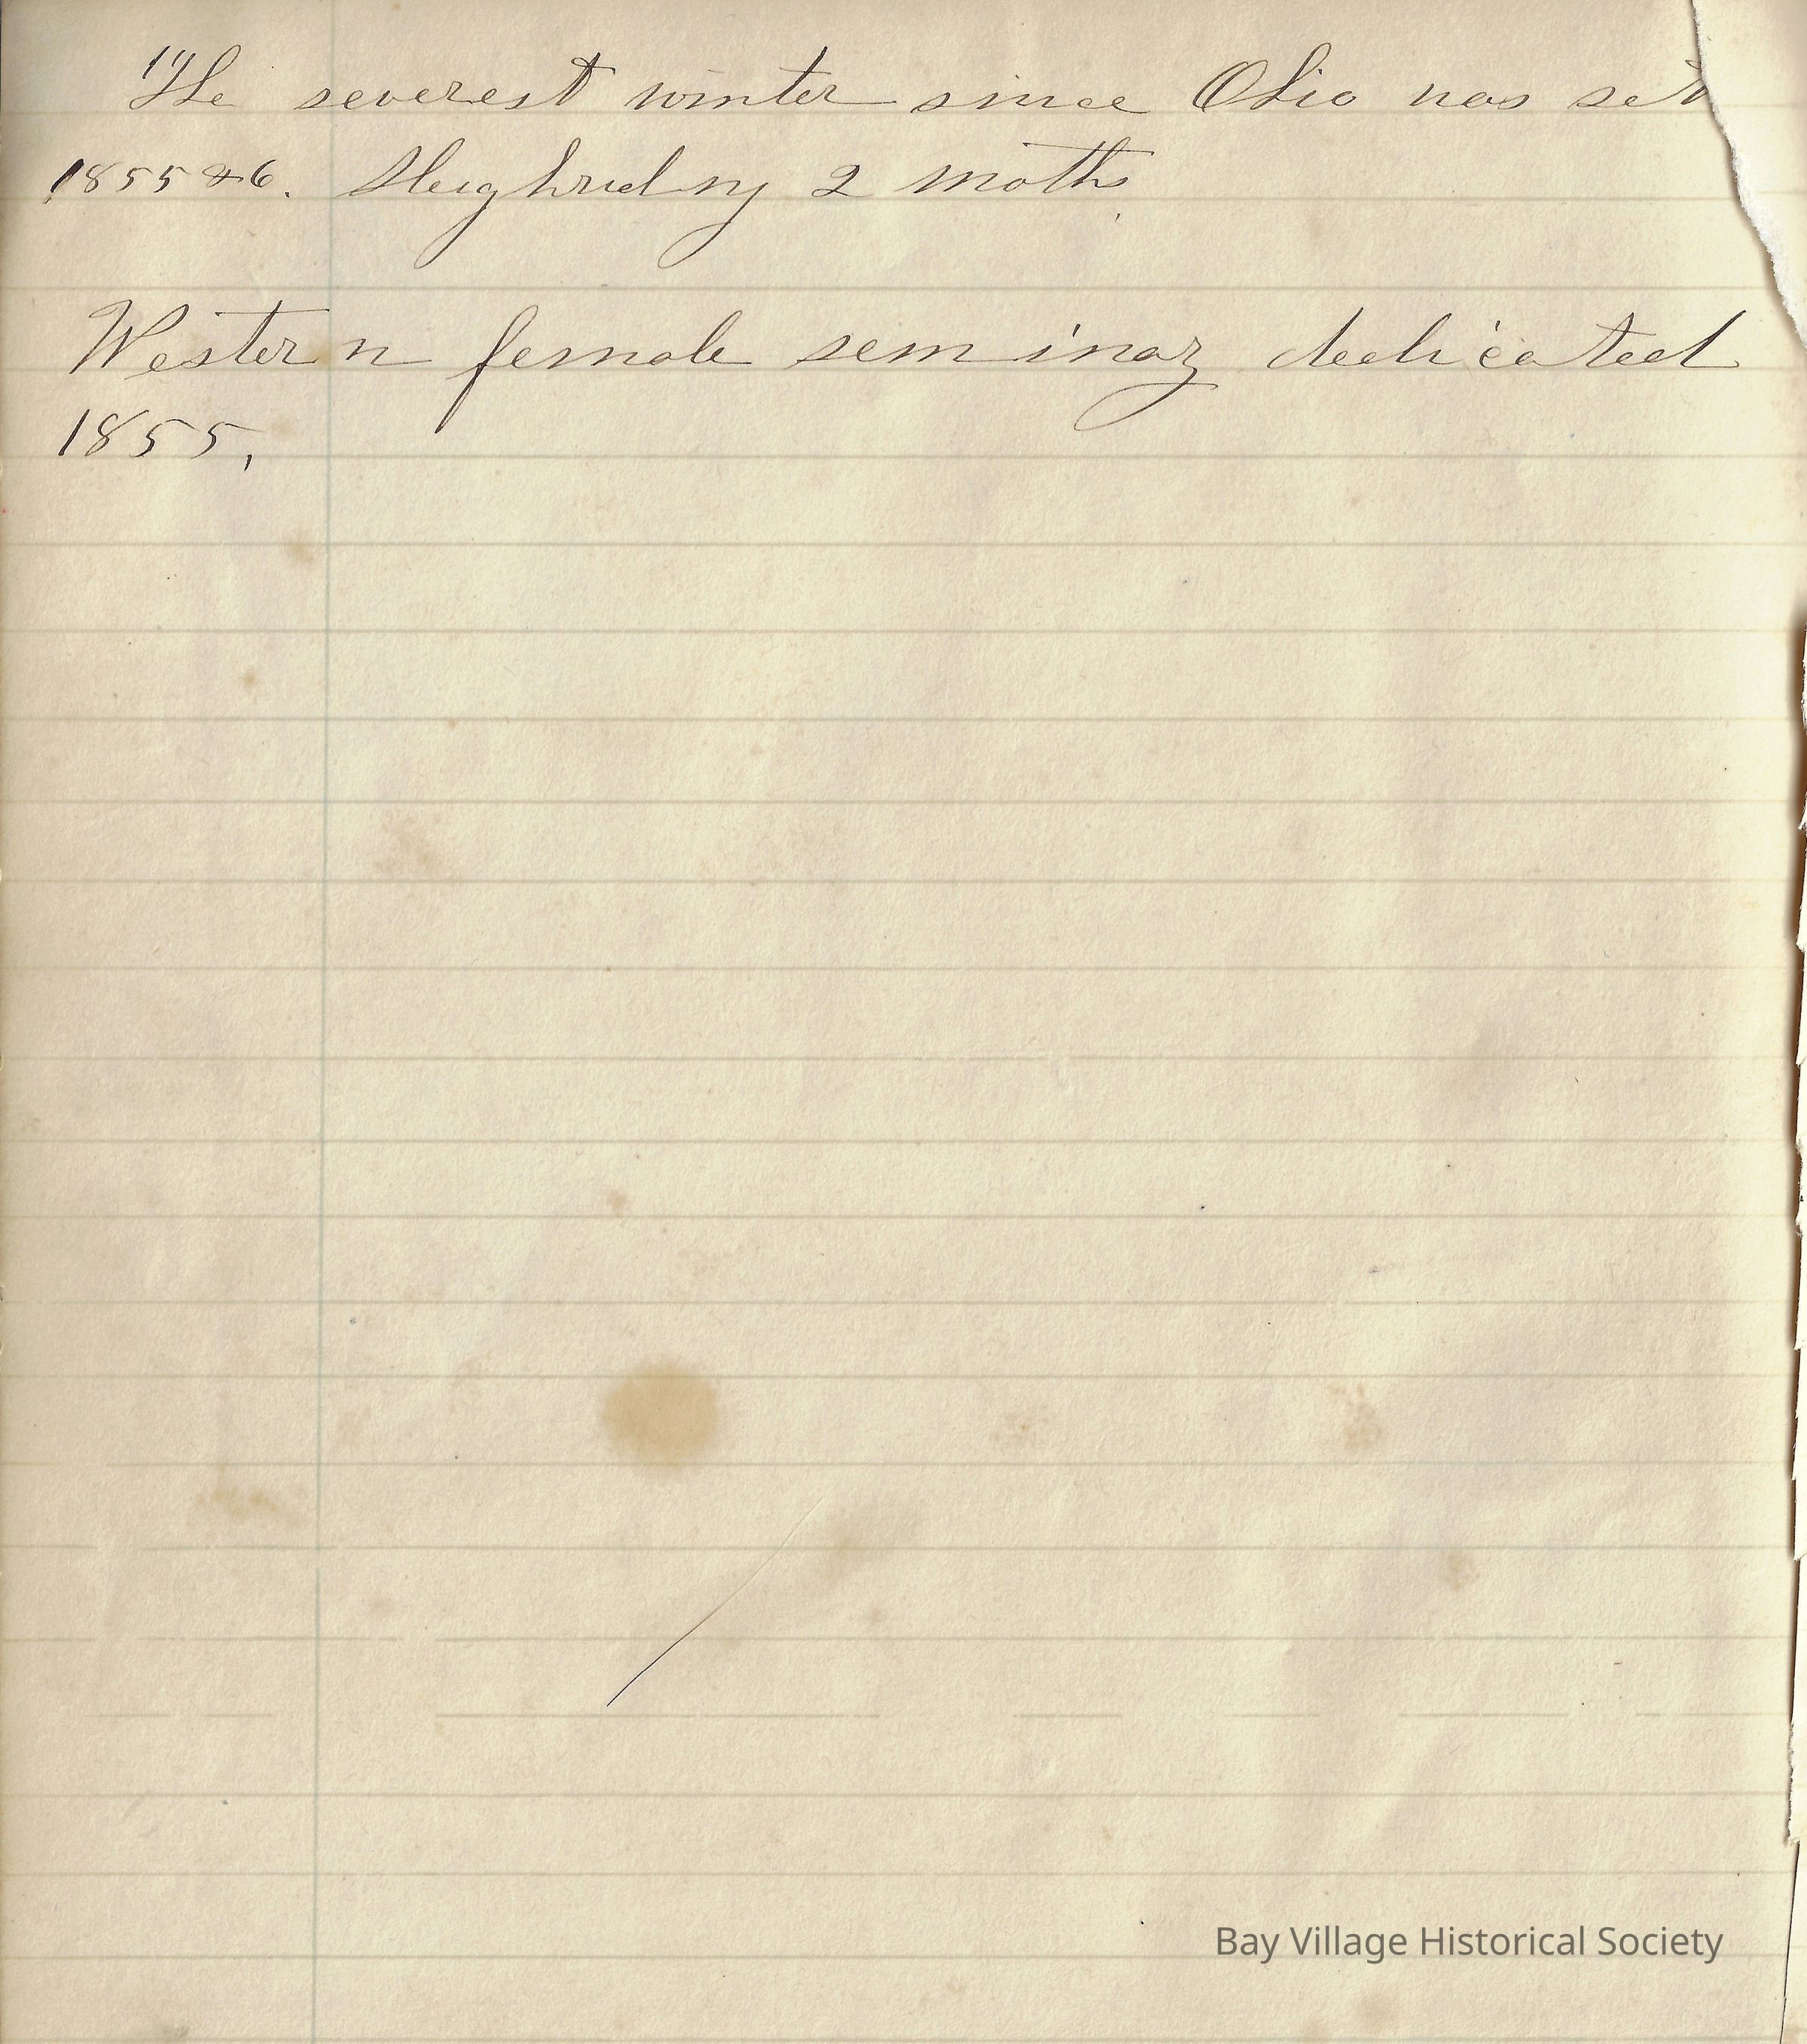 "The severest winter since Ohio was set
1855 & 6. Sleighriding 2 moths
Western female seminary dedicated
1855.
Bay Village Historical Society